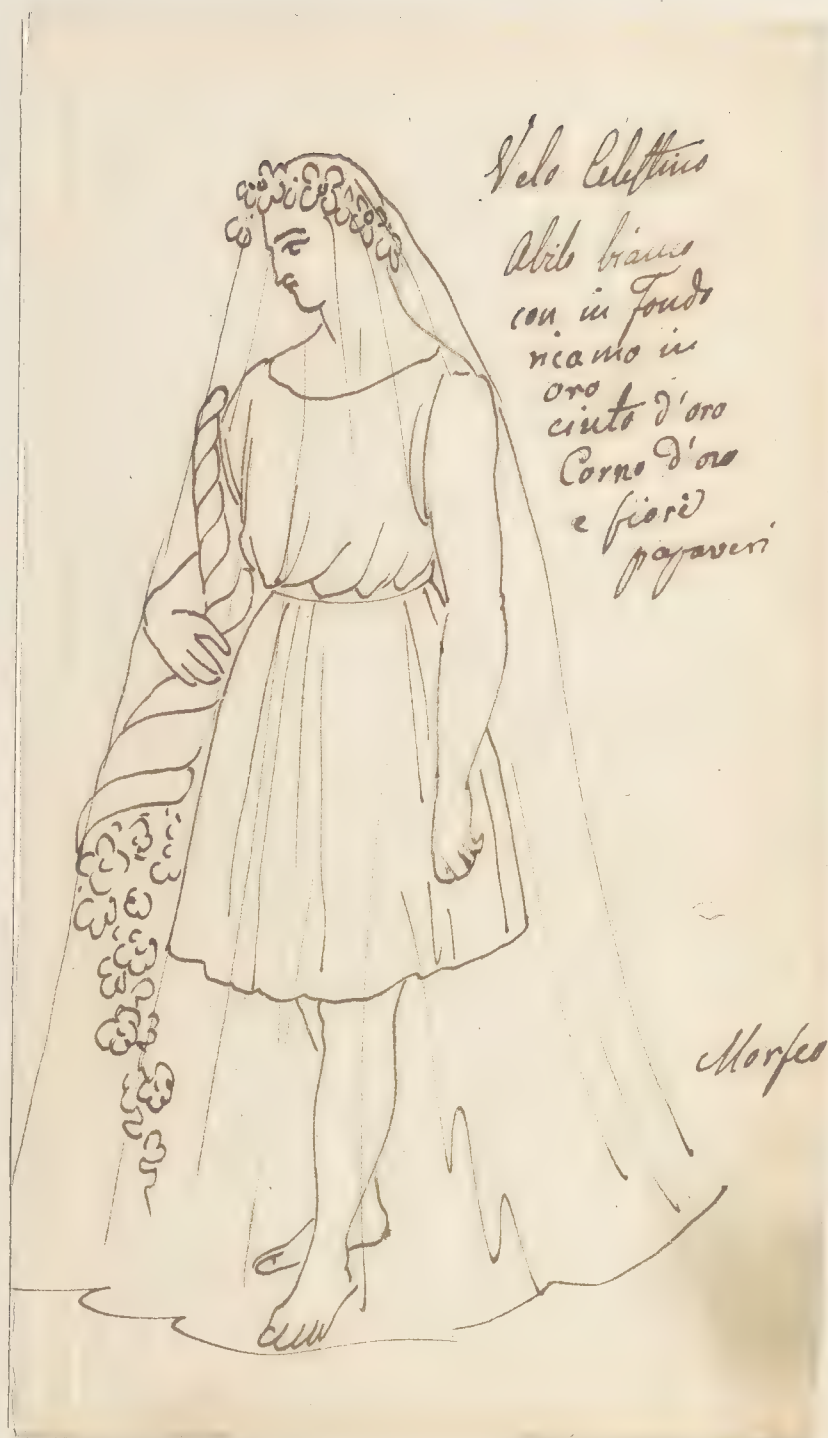 Velo Celestino
Abito bianco
con in fondo
ricamo in
oro
cinto d'oro
Corno d'oro
e fiori
papaveri
Morfeo